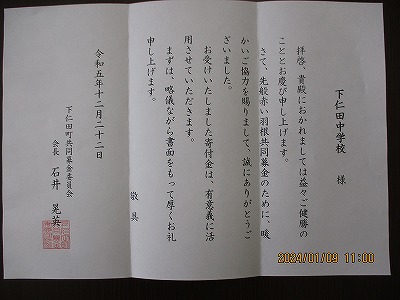 下仁田中学校　様
拝啓、貴殿におかれましては益々ご健勝の
こととお慶び申し上げます。
さて、先般赤い羽根共同募金のために、暖
かいご協力を賜りまして、誠にありがとうご
ざいました。
お受けいたしました寄付金は、有意義に活
用させていただきます。
まずは、略儀ながら書面をもって厚くお礼
申し上げます。
敬具
令和五年十二月二十二日
下仁田町共同募金委員会
会長　石井　晃英
2024/01/09 11:00